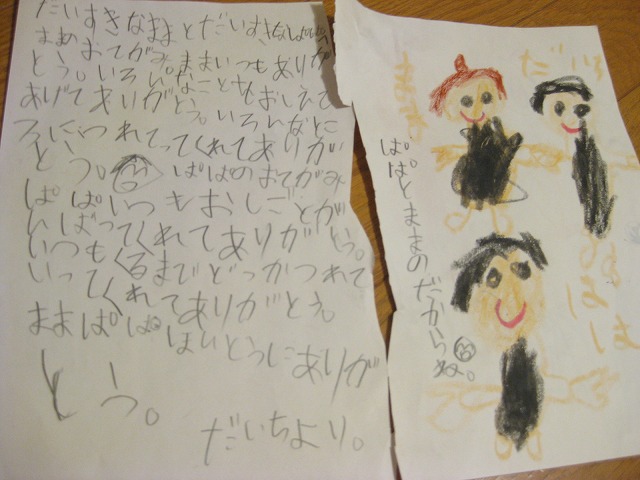 だいすきなままとだいすきなぱぱ
まあおてがみ。ままいつもありが
とう。いろいろなことをおしえて
あげてありがとう。いろんなとこ
ろにつれてってくれてありが
とう。ぱぱのおてがみ
ぱぱいつもおしごとが
んばってくれてありがとう。
いつもくるまでどっかつれて
いってくれてありがとう。
ままぱぱほんとうにありが
とう。
だいちより。
ぱぱとままのだからね。